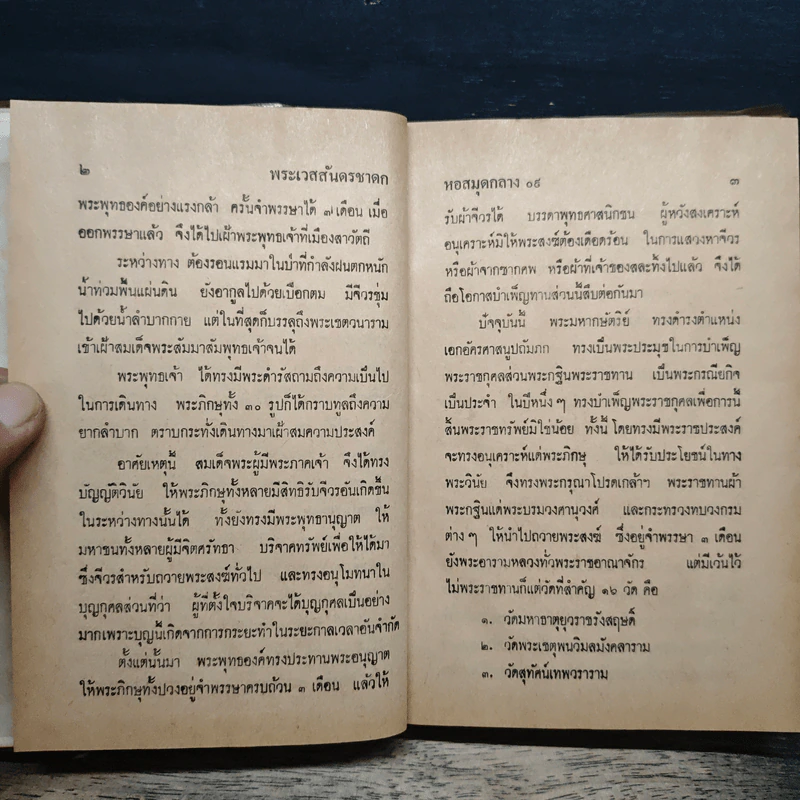 ๒ พระเวสสันดรชาดก
พระพุทธองค์อย่างแรงกล้า ครั้นจำพรรษาได้ ๓ เดือน เมื่อ
ออกพรรษาแล้ว จึงได้ไปเฝ้าพระพุทธเจ้าที่เมืองสาวัตถี
ระหว่างทาง ต้องรอนแรมมาในป่าที่กำลังฝนตกหนัก
น้ำท่วมพื้นแผ่นดิน ยังอากูลไปด้วยเปือกตม มีจีวรชุ่ม
ไปด้วยน้ำลำบากกาย แต่ในที่สุดก็บรรลุถึงพระเชตวนาราม
เข้าเฝ้าสมเด็จพระสัมมาสัมพุทธเจ้าจนได้
พระพุทธเจ้า ได้ทรงมีพระดำรัสถามถึงความเป็นไป
ในการเดินทาง พระภิกษุทั้ง ๓๐ รูปก็ได้กราบทูลถึงความ
ยากลำบาก ตราบกระทั่งเดินทางมาเฝ้าสมความประสงค์
อาศัยเหตุนี้ สมเด็จพระผู้มีพระภาคเจ้า จึงได้ทรง
บัญญัติวินัย ให้พระภิกษุทั้งหลายมีสิทธิรับจีวรอันเกิดขึ้น
ในระหว่างทางนั้นได้ ทั้งยังทรงมีพระพุทธานุญาต ให้
มหาชนทั้งหลายผู้มีจิตศรัทธา บริจาคทรัพย์เพื่อให้ได้มา
ซึ่งจีวรสำหรับถวายพระสงฆ์ทั่วไป และทรงอนุโมทนาใน
บุญกุศลส่วนที่ว่า ผู้ที่ตั้งใจบริจาคจะได้บุญกุศลเป็นอย่าง
มากเพราะบุญนี้เกิดจากการกระยะทำในระยะกาลเวลาอันจำกัด
ตั้งแต่นั้นมา พระพุทธองค์ทรงประทานพระอนุญาต
ให้พระภิกษุทั้งปวงอยู่จำพรรษาครบถ้วน ๓ เดือน แล้วให้
หอสมุดกลาง ๐๙ ๓
รับผ้าจีวรได้ บรรดาพุทธศาสนิกชน ผู้หวังสงเคราะห์
อนุเคราะห์มิให้พระสงฆ์ต้องเดือดร้อน ในการแสวงหาจีวร
หรือผ้าจากซากศพ หรือผ้าที่เจ้าของสละทิ้งไปแล้ว จึงได้
ถือโอกาสบำเพ็ญทานส่วนนี้สืบต่อกันมา
ปัจจุบันนี้ พระมหากษัตริย์ ทรงดำรงตำแหน่ง
เอกอัครศาสนูปถัมภก ทรงเป็นพระประมุขในการบำเพ็ญ
พระราชกุศลส่วนพระกฐินพระราชทาน เป็นพระกรณียกิจ
เป็นประจำ ในปีหนึ่ง ๆ ทรงบำเพ็ญพระราชกุศลเพื่อการนี้
สิ้นพระราชทรัพย์มิใช่น้อย ทั้งนี้ โดยทรงมีพระราชประสงค์
จะทรงอนุเคราะห์แด่พระภิกษุ ให้ได้รับประโยชน์ในทาง
พระวินัย จึงทรงพระกรุณาโปรดเกล้าฯ พระราชทานผ้า
พระกฐินแด่พระบรมวงศานุวงศ์ และกระทรวงทบวงกรม
ต่าง ๆ ให้นำไปถวายพระสงฆ์ ซึ่งอยู่จำพรรษา ๓ เดือน
ยังพระอารามหลวงทั่วพระราชอาณาจักร แต่มีเว้นไว้
ไม่พระราชทานก็แต่วัดที่สำคัญ ๑๖ วัด คือ
๑. วัดมหาธาตุยุวราชรังสฤษดิ์
๒. วัดพระเชตุพนวิมลมังคลาราม
๓. วัดสุทัศน์เทพวราราม